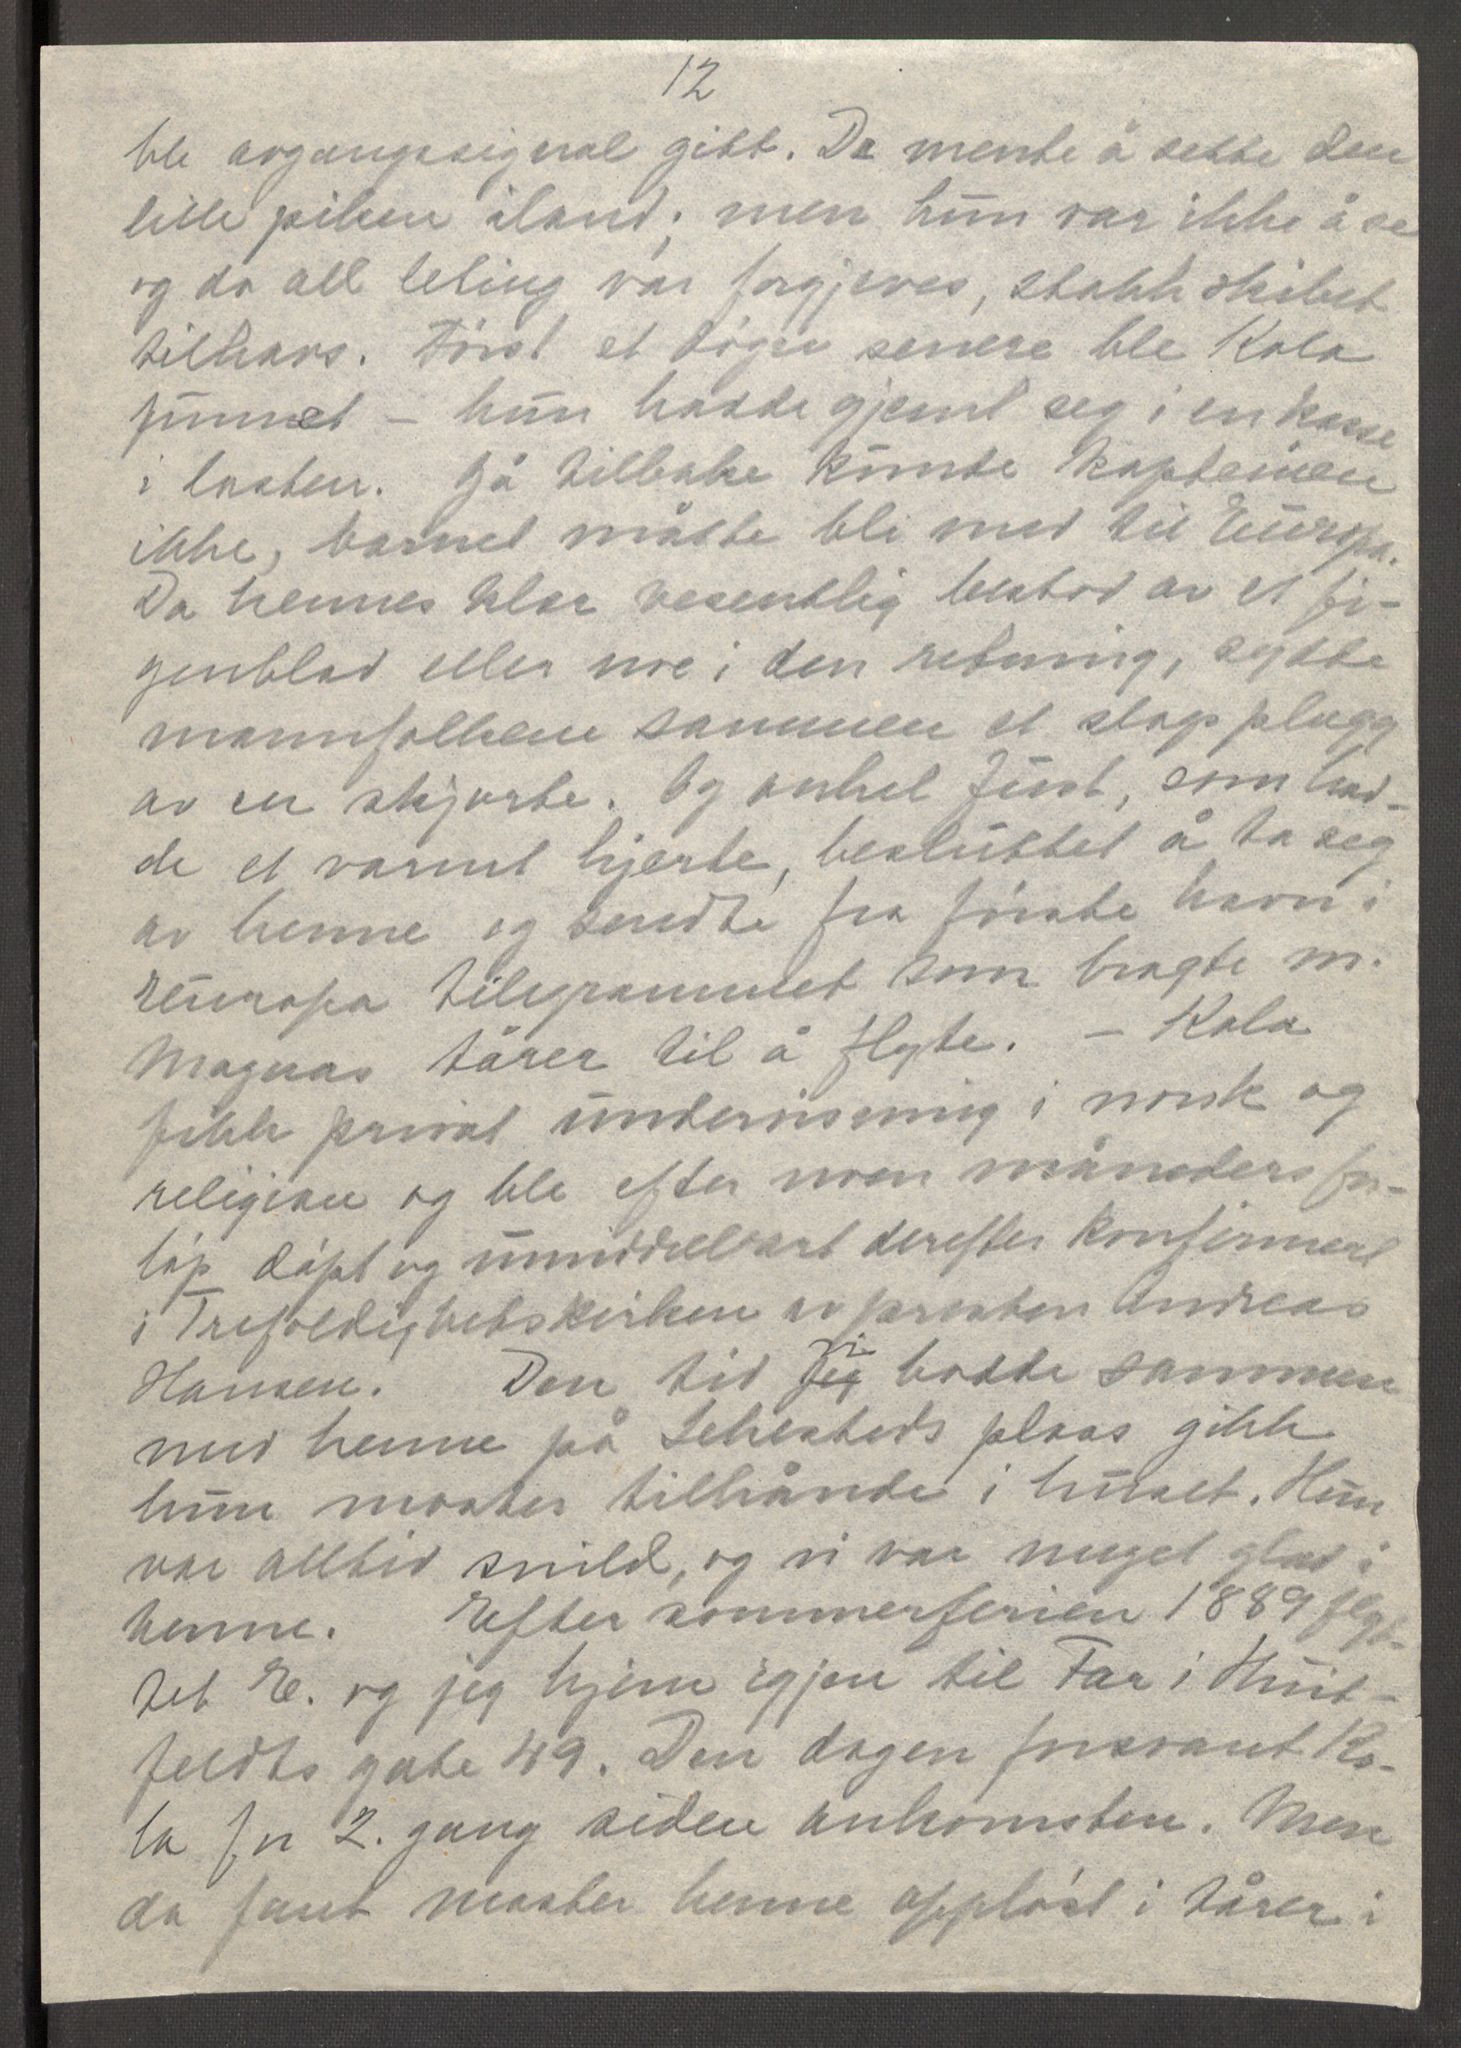 12
ble avgangssignal gitt. De mente å sette den
lille piken iland; men hun var ikke å se
og da all leting var forgjeves, stakk skibet
tilhavs. Først et døgn senere ble Kala
funnet – hun hadde gjemt seg i en kasse
i lasten. Gå tilbake kunde kapteinen
ikke, barnet måtte bli med til Europa.
Da hennes klær vesentlig bestod av et fi-
genblad eller noe i den retning, sydde
mannfolkene sammen et slags plagg
av en skjorte. Og onkel Just, som had-
de et varmt hjerte, besluttet å ta seg
av henne og sendte fra første havn i
Europa telegrammet som bragte m.
Magnas tårer til å flyte. – Kala
fikk privat undervisning i norsk og
religion og ble efter noen måneders for-
løp døpt og umiddelbart derefter konfirmert
i Trefoldighetskirken av presten Andreas
Hansen. Den tid vi bodde sammen
med henne på Sehesteds plass gikk
hun moster tilhånde i huset. Hun
var alltid snild, og vi var meget glad i
henne. Efter sommerferien 1889 flyt-
tet E. og jeg hjem igjen til Far i Huit-
feldts gate 49. Den dagen forsvant Ka-
la for 2. gang siden ankomsten. Men
da fant moster henne oppløst i tårer i